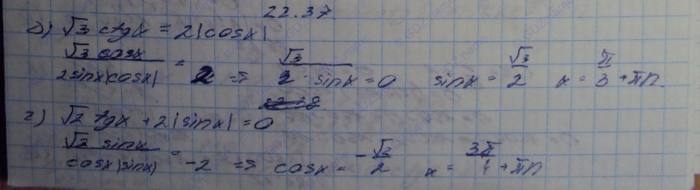 22.37
д) √3 ctgx = 2|cosx|
√3 cosx / 2sinx|cosx| = 2 ⇒ √3 / 2 · sinx = 0 sinx = √3 / 2 x = π / 3 + πn
г) √2 tgx + 2|sinx| = 0
√2 sinx / cosx|sinx| = -2 ⇒ cosx = -√2 / 2 x = 3π / 4 + πn